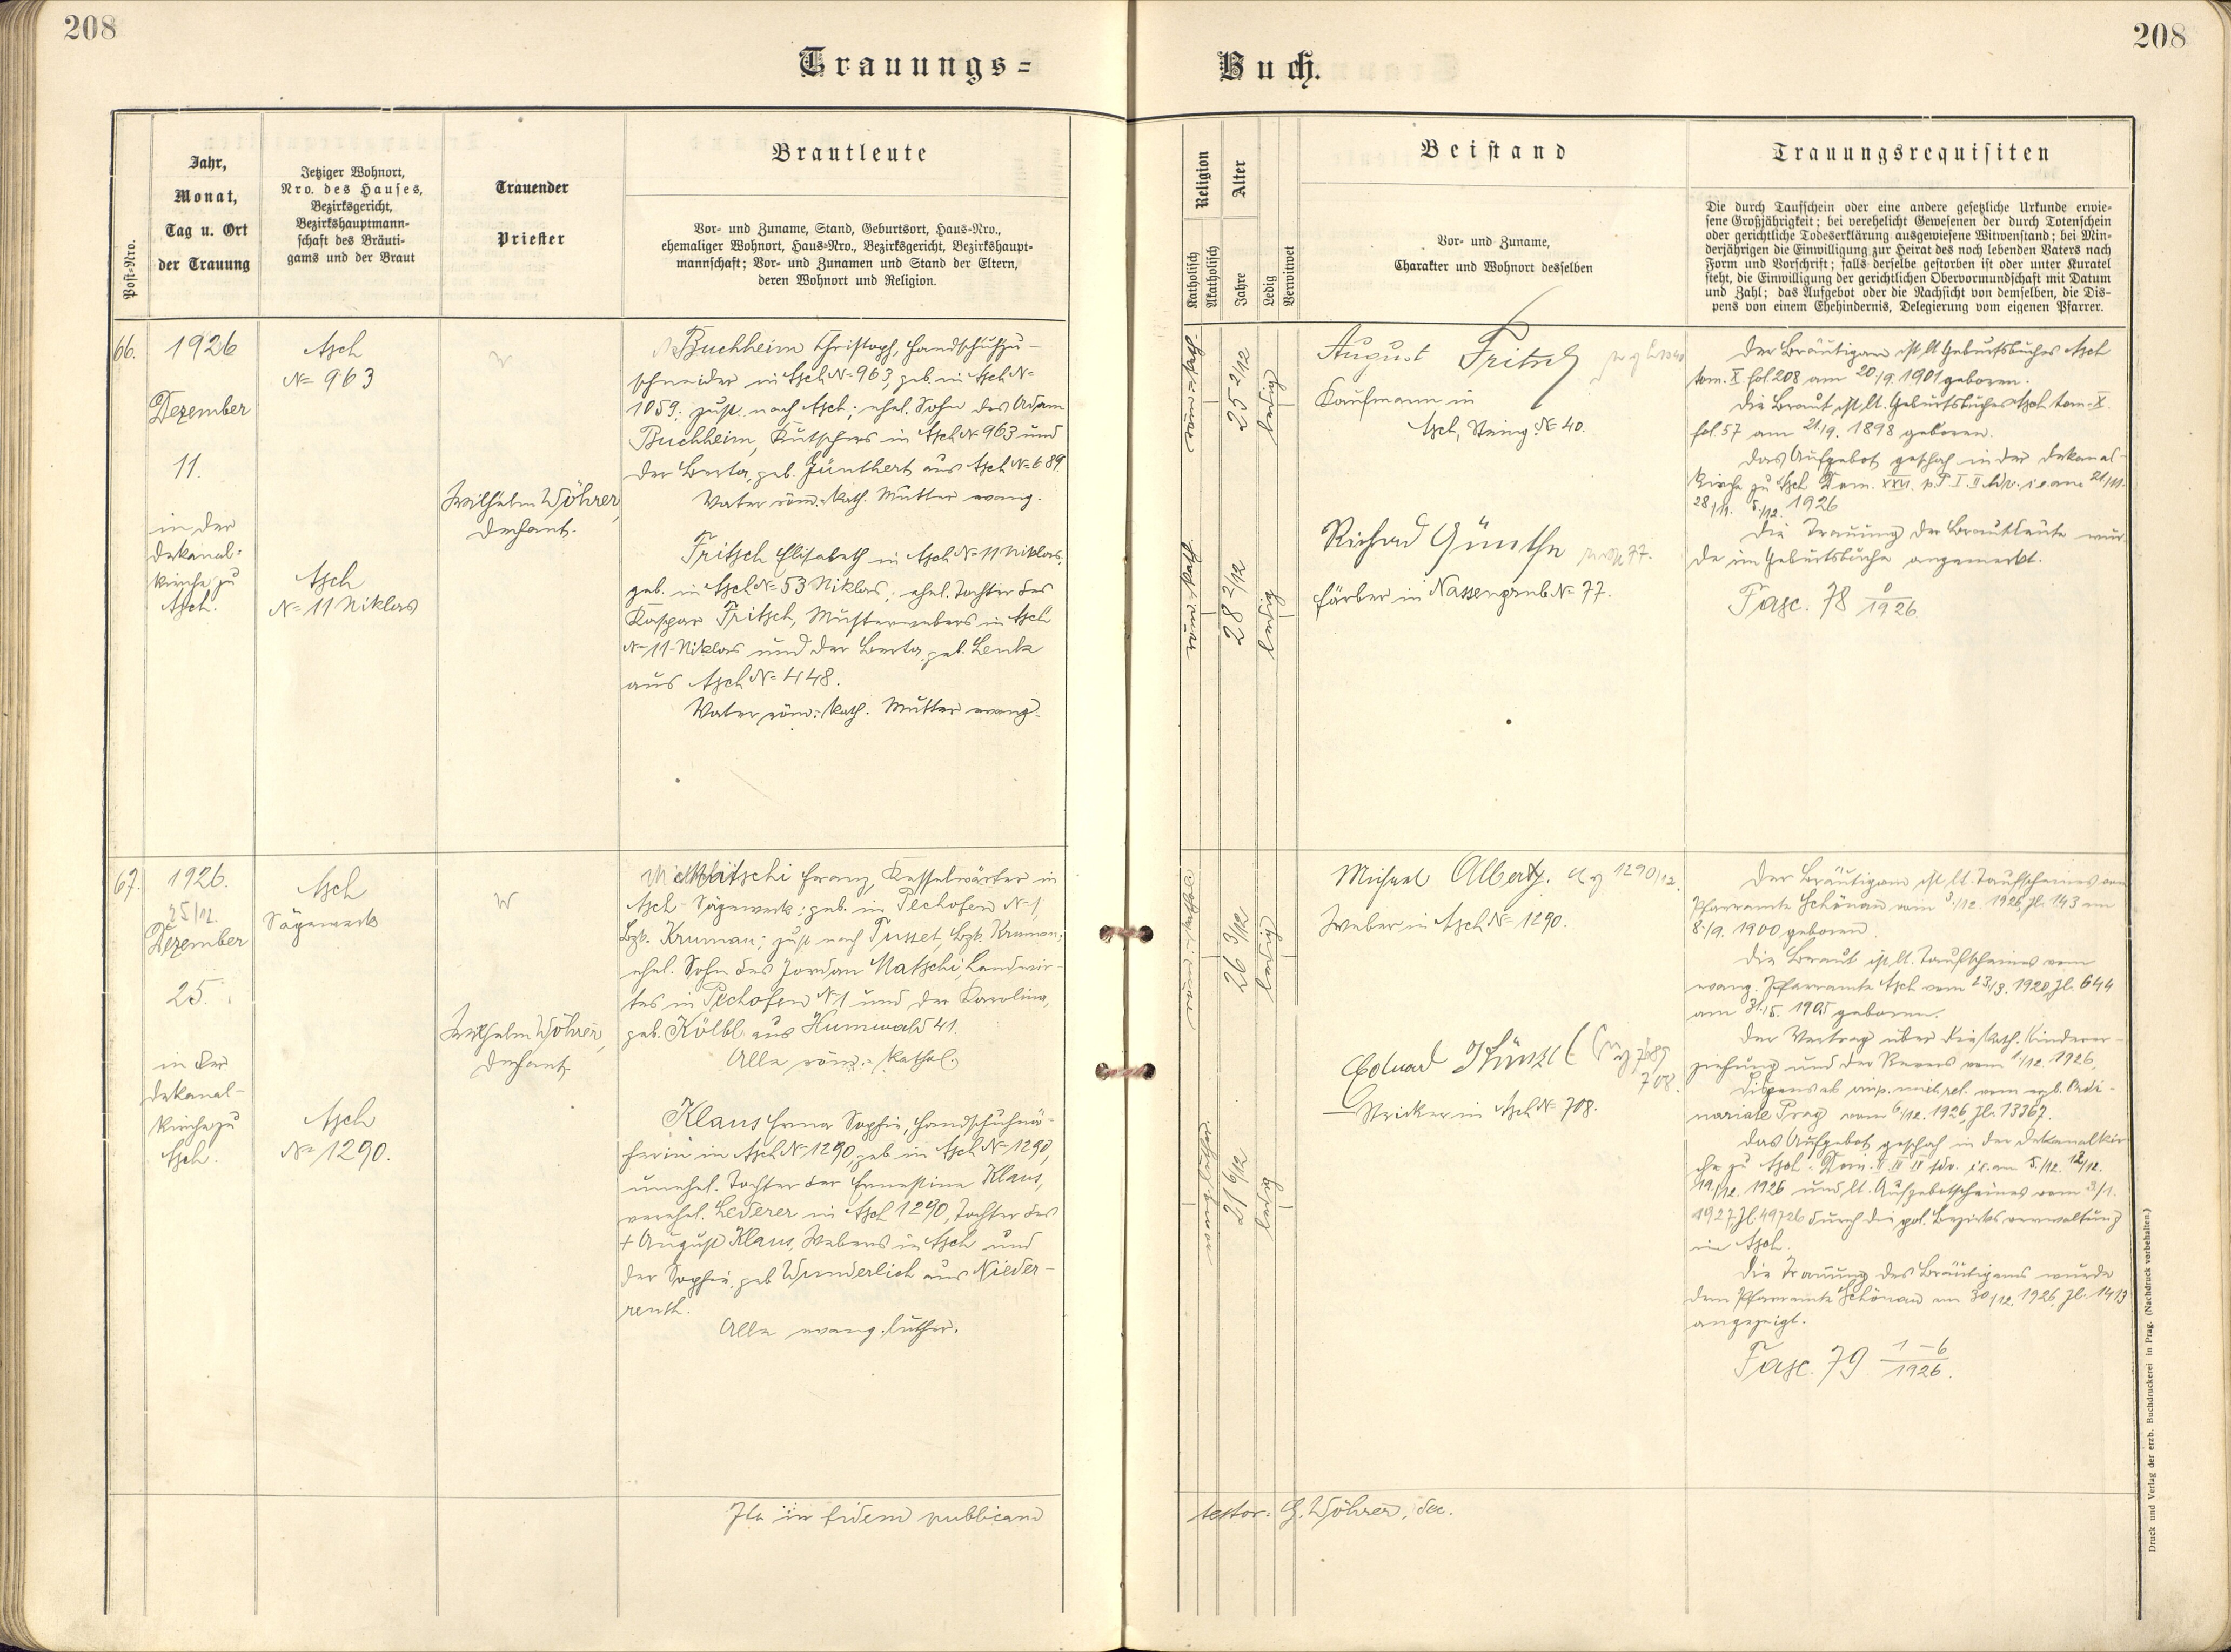 208
208
Trauungs=
Buch.
Post-Nro.
Jahr,
Monat,
Tag u. Ort
der Trauung
Jetziger Wohnort,
Nro. des Hauses,
Bezirksgericht,
Bezirkshauptmann-
schaft des Bräuti-
gams und der Braut
Trauender
Priester
Brautleute
Vor- und Zuname, Stand, Geburtsort, Haus-Nro.,
ehemaliger Wohnort, Haus-Nro., Bezirksgericht, Bezirkshaupt-
mannschaft; Vor- und Zunamen und Stand der Eltern,
deren Wohnort und Religion.
Religion
Katholisch
Akatholisch
Alter
Jahre
Ledig
Verwitwet
Beistand
Vor- und Zuname,
Charakter und Wohnort desselben
Trauungsrequisiten
Die durch Taufschein oder eine andere gesetzliche Urkunde erwie-
sene Großjährigkeit; bei verehelicht Gewesenen der durch Totenschein
oder gerichtliche Todeserklärung ausgewiesene Witwenstand; bei Min-
derjährigen die Einwilligung zur Heirat des noch lebenden Vaters nach
Form und Vorschrift; falls derselbe gestorben ist oder unter Kuratel
steht, die Einwilligung der gerichtlichen Obervormundschaft mit Datum
und Zahl; das Aufgebot oder die Nachsicht von demselben, die Dis-
pens von einem Ehehindernis, Delegierung vom eigenen Pfarrer.
66.
1926
Dezember
11.
in der
Dekanal=
kirche zu
Asch.
Asch
No 963
Asch
No 11 Niklas
Wilhelm Wöhrer,
Dechant.
Buchheim Christoph, Handschuhzu-
schneider in Asch No 963, geb. in Asch No
1059; zust. nach Asch; ehel. Sohn des Adam
Buchheim, Kutschers in Asch No 963 und
der Berta, geb. Jünthert aus Asch No 689.
Vater röm.-kath. Mutter evang.
Fritsch Elisabeth in Asch No 11 Niklas,
geb. in Asch No 53 Niklas; ehel. Tochter des
Kaspar Fritsch, Musterwebers in Asch
No 11 Niklas und der Berta, geb. Lenk
aus Asch No 448.
Vater röm.-kath. Mutter evang.
25 2/12
ledig
28 2/12
ledig
August Fritsch
Kaufmann in
Asch, Steing. No 40.
Richard Günther
Färber in Nassengrub No 77.
Der Bräutigam ist lt. Geburtsbuches Asch
tom. X. fol. 208 am 20/9. 1901 geboren.
Die Braut ist lt. Geburtsbuches Asch tom. X.
fol. 57 am 21./9. 1898 geboren.
Das Aufgebot geschah in der Dekanal-
kirche zu Asch Dom. XXVI. p. P. I. II. Adv. i. e. am 21/11.
28/11. 5./12. 1926
Die Trauung der Brautleute wur
de im Geburtsbuche angemerkt.
Fasc. 78 1926
67.
1926.
25/12.
Dezember
25.
in der
Dekanal-
kirche zu
Asch.
Asch
Sägewerk
Asch
No 1290.
Wilhelm Wöhrer,
Dechant
Matschi Franz, Kesselwärter in
Asch-Sägewerk; geb. in Pechofen No 1,
Bzk. Krumau; zust. nach Tusset, Bzk. Krumau;
ehel. Sohn des Jordan Matschi, Landwir-
tes in Pechofen No 1 und der Karolina,
geb. Kölbl aus Humwald 41.
Alle röm.-kathol.
Klaus Erna Sophie, Handschuhnä-
herin in Asch No 1290, geb. in Asch No 1290,
unehel. Tochter der Ernestine Klaus,
verehel. Lederer in Asch 1290, Tochter des
+ August Klaus, Webers in Asch und
der Sophie, geb. Wunderlich aus Nieder-
reuth.
Alle evang. luther.
26 3/12
ledig
21 6/12
ledig
Michael Albert.
1290/12.
Weber in Asch No 1290.
Eduard Künzel
708.
Stricker in Asch No 708.
Der Bräutigam ist lt. Taufscheines vom
Pfarramte Schönau vom 5./12. 1926, Zl. 143 am
8./9. 1900 geboren.
Die Braut ist lt. Taufscheines vom
evang. Pfarramte Asch vom 23/3. 1920 Zl. 644
am 31./5. 1905 geboren.
Der Vertrag über die kath. Kinderer-
ziehung und der Revers vom 1/12. 1926,
Dispens ab imp. mixt. rel. vom erzb. Ordi-
nariate Prag vom 6/12. 1926 Zl. 13367.
Das Aufgebot geschah in der Dekanalkir
che zu Asch. Dom. II. III. IV. Adv. i. e. am 5./12. 12/12.
19/12. 1926 und lt. Aufgebotscheines vom 3/1.
1927 Zl. 49726 durch die pol. Bezirksverwaltung
in Asch.
Die Trauung des Bräutigams wurde
dem Pfarramte Schönau am 30/12. 1926, Zl. 1413
angezeigt.
Fasc. 79 1-6 1926.
Ita in fidem publicam
testor: G. Wöhrer, dec.
Druck und Verlag der erzb. Buchdruckerei in Prag. (Nachdruck vorbehalten.)